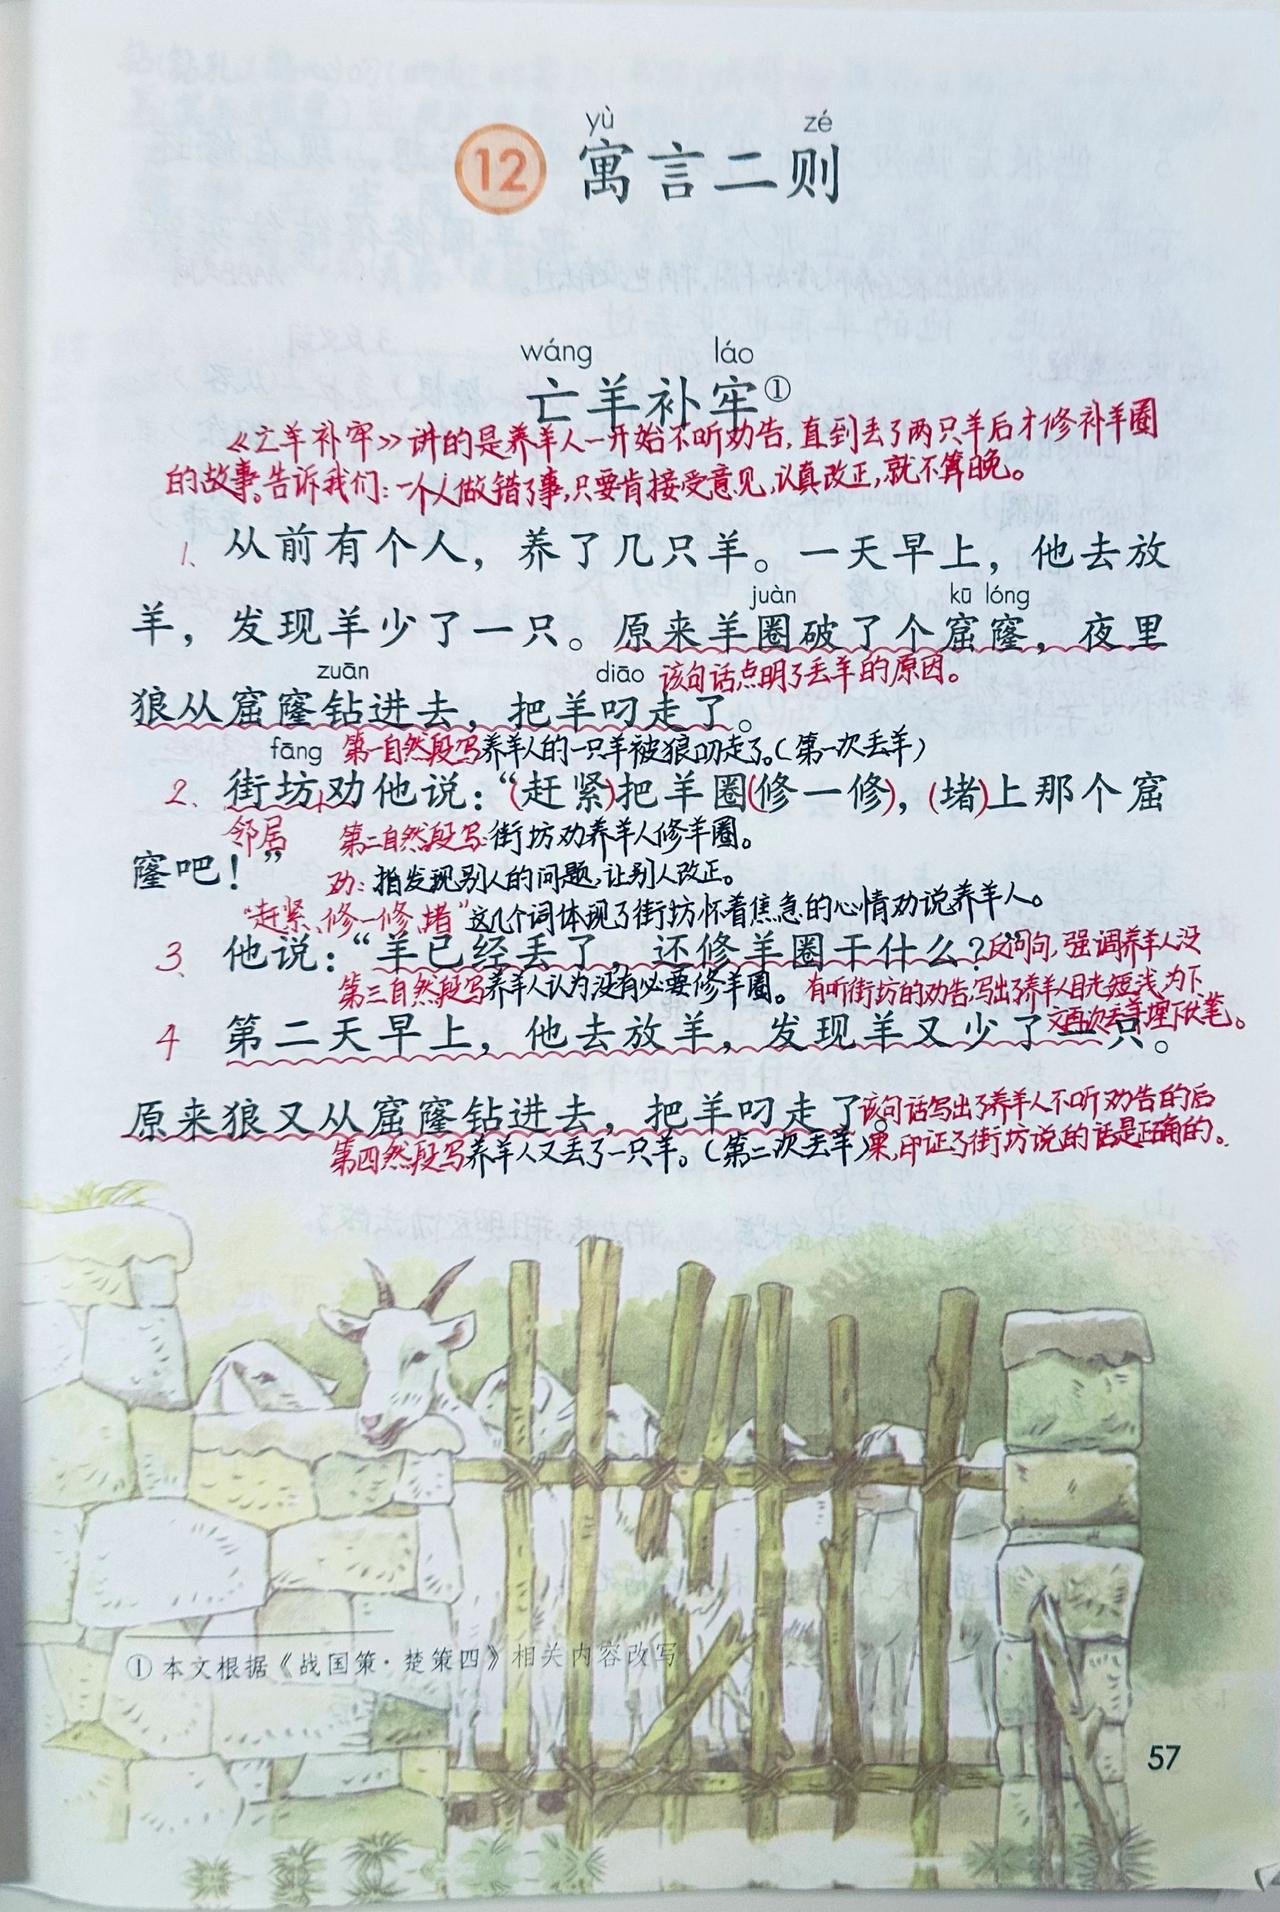 yù zé
12 寓言二则
wáng láo
亡羊补牢①
《亡羊补牢》讲的是养羊人一开始不听劝告,直到丢了两只羊后才修补羊圈
的故事。告诉我们:一个人做错了事,只要肯接受意见,认真改正,就不算晚。
1、从前有个人，养了几只羊。一天早上，他去放
juàn kū lóng
羊，发现羊少了一只。原来羊圈破了个窟窿，夜里
zuān diāo 该句话点明了丢羊的原因。
狼从窟窿钻进去，把羊叼走了。
fāng 第一自然段写养羊人的一只羊被狼叼走了。(第一次丢羊)
2、街坊劝他说：“(赶紧)把羊圈(修一修)，(堵)上那个窟
邻居 第二自然段写:街坊劝养羊人修羊圈。
窿吧！”
劝:指发现别人的问题,让别人改正。
“赶紧、修一修、堵”这几个词体现了街坊怀着焦急的心情劝说养羊人。
3、他说：“羊已经丢了，还修羊圈干什么？”反问句,强调养羊人没
第三自然段写养羊人认为没有必要修羊圈。有听街坊的劝告,写出了养羊人目光短浅,为下
文再次丢羊埋下伏笔。
4 第二天早上，他去放羊，发现羊又少了一只。
原来狼又从窟窿钻进去，把羊叼走了。该句话写出了养羊人不听劝告的后
第四然段写养羊人又丢了一只羊。(第二次丢羊)果,印证了街坊说的话是正确的。
①本文根据《战国策·楚策四》相关内容改写
57